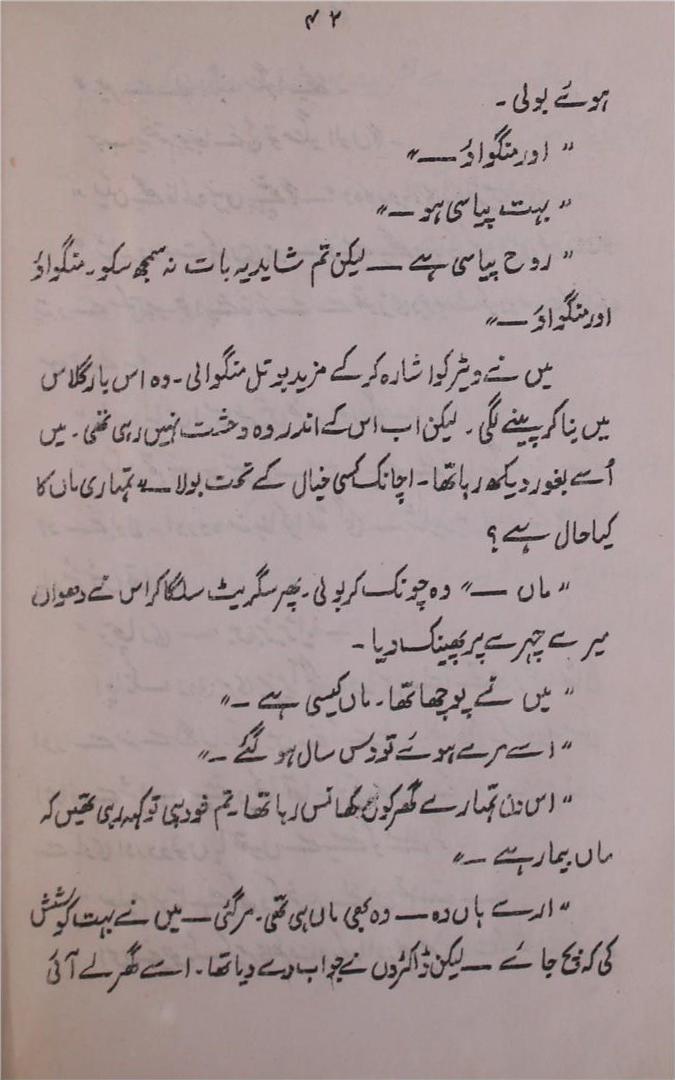 ۴۲
ہوئے بولی ۔
" اور منگواؤ ــــ "
" بہت پیاسی ہو ــ "
" روح پیاسی ہے ــــ لیکن تم شاید یہ بات نہ سمجھ سکو ۔ منگواؤ
اور منگواؤ ــــ "
میں نے ویٹر کو اشارہ کر کے مزید بوتل منگوالی ۔ وہ اس بار گلاس
میں بنا کر پینے لگی ۔ لیکن اب اس کے اندر وہ وحشت نہیں رہی تھی ۔ میں
اُسے بغور دیکھ رہا تھا ۔ اچانک کسی خیال کے تحت بولا ــ " تمہاری ماں کا
کیا حال ہے ؟
" ماں ــــ " وہ چونک کر بولی ۔ پھر سگریٹ سلگا کر اس نے دھواں
میرے چہرے پر پھینک دیا ۔
" میں نے پوچھا تھا ۔ ماں کیسی ہے ــ "
" اسے مرے ہوئے تو دس سال ہو گئے ــ "
" اس دن تمہارے گھر کون کھانس رہا تھا ۔ تم خود ہی تو کہہ رہی تھیں کہ
ماں بیمار ہے ــ "
" ارے ہاں وہ ــــ وہ بھی ماں ہی تھی ۔ مر گئی ــــ میں نے بہت کوشش
کی کہ بچ جائے ــــ لیکن ڈاکٹروں نے جواب دے دیا تھا ۔ اسے گھر لے آئی